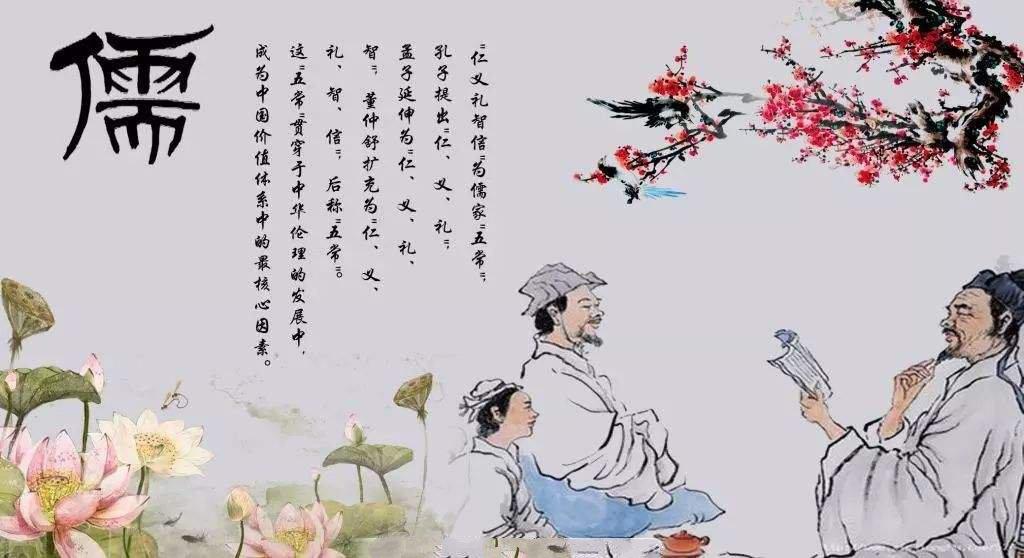 儒
“仁义礼智信”为儒家“五常”,
孔子提出“仁、义、礼”,
孟子延伸为“仁、义、礼、
智”, 董仲舒扩充为“仁、义、
礼、智、信”, 后称“五常”。
这“五常”贯穿于中华伦理的发展中,
成为中国价值体系中的最核心因素。